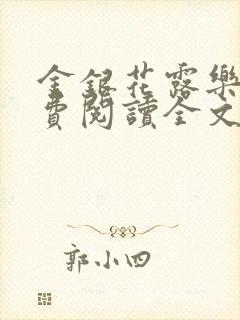 金銀花露樂
費閱讀全文
郭小四